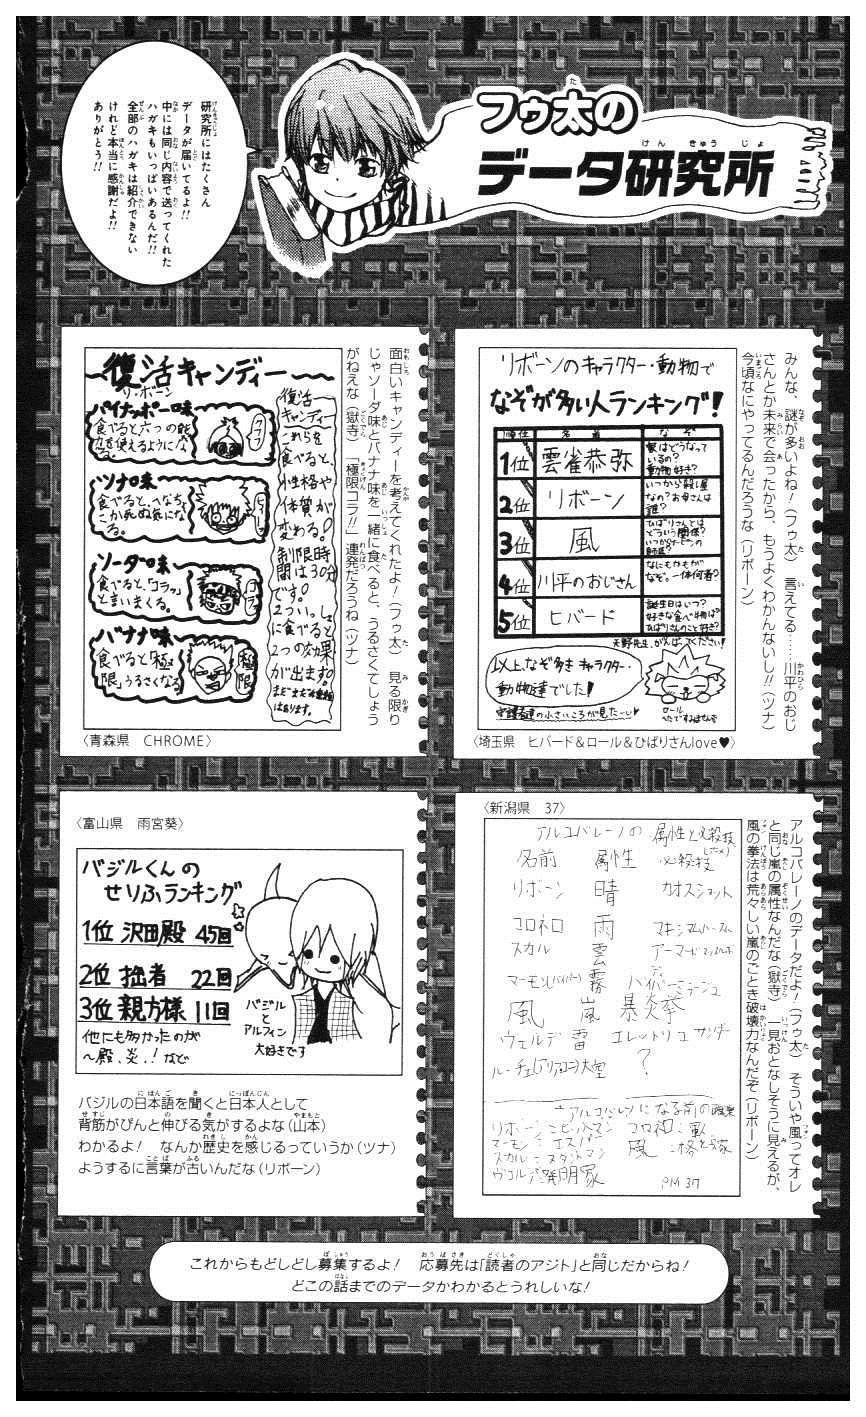 フゥ太の
データ研究所
研究所にはたくさん
データが届いてるよ!!
中には同じ内容で送ってくれた
ハガキもいっぱいあるんだ!!
全部のハガキは紹介できない
けれど本当に感謝だよ!!
ありがとう!!
みんな、謎が多いよね!(フゥ太) 言えてる……川平のおじ
さんとか未来で会ったから、もうよくわかんないし!!(ツナ)
今頃なにやってるんだろうな(リボーン)
リボーンのキャラクター・動物で
なぞが多い人ランキング!
順位 名者 なぞ
1位 雲雀恭弥 家はどうなって
いるの?
動物好き?
2位 リボーン いつから殺し屋
なの?お母さんは
誰?
3位 風 ひばりさんとは
どういう関係?
4位 川平のおじさん なにもかもが
なぞ。一体何者?
5位 ヒバード 誕生日はいつ?
好きな食べ物は?
ひばりさんのこと好き?
天野先生、がんばってください!
以上、なぞ多きキャラクター・
動物達でした!
守護者達の小さいころが見たーい♥
ロール
へたですみません
〈埼玉県 ヒバード&ロール&ひばりさんlove♥〉
面白いキャンディーを考えてくれたよ!(フゥ太) 見る限り
じゃソーダ味とバナナ味を一緒に食べると、うるさくてしょう
がねえな(獄寺) 「極限コラ!!」連発だろうね(ツナ)
〜復活キャンディー〜
リ・ボーン
パイナッポー味
食べると六つの能
力を使えるようにな
る。
クフフ
ツナ味
食べると、へなちょ
こか死ぬ気にな
る。
ヒィー
ソーダ味
食べると、「コラッ」
と言いまくる。
コラ
バナナ味
食べると「極
限」うるさくなる
極限
復活
キャンディー
これらを
食べると、
性格や
体質が
変わる!
制限時
間は30分
です。
2ついっしょ
に食べると
2つの効果
が出ます。
まだまだ種類
はあります。
〈青森県 CHROME〉
〈富山県 雨宮葵〉
バジルくんの
せりふランキング
1位 沢田殿 45回
2位 拙者 22回
3位 親方様 11回
他にも多かったのが
〜殿、炎、!など
バジル
と
アルフィン
大好きです
バジルの日本語を聞くと日本人として
背筋がぴんと伸びる気がするよな(山本)
わかるよ! なんか歴史を感じるっていうか(ツナ)
ようするに言葉が古いんだな(リボーン)
〈新潟県 37〉
アルコバレーノのデータだよ!(フゥ太) そういや風ってオレ
と同じ嵐の属性なんだな(獄寺) 一見おとなしそうに見えるが、
風の拳法は荒々しい嵐のごとき破壊力なんだぞ(リボーン)
アルコバレーノの属性と必殺技
名前 属性 必殺技
リボーン 晴 カオスショット
コロネロ 雨 マキシマムバースト
スカル 雲 アーマードマッスルボディ
マーモン(バイパー) 霧 ハイパーミラージュ
風 嵐 暴炎拳
ヴェルデ 雷 エレットリコサンダー
ルーチェ(アリア・ユニ) 大空 ?
アルコバレーノになる前の職業
リボーン:ヒットマン コロネロ:軍人
マーモン:エスパー 風:格とう家
スカル:スタントマン
ヴェルデ:発明家
PM 37
これからもどしどし募集するよ! 応募先は「読者のアジト」と同じだからね!
どこの話までのデータかわかるとうれしいな!